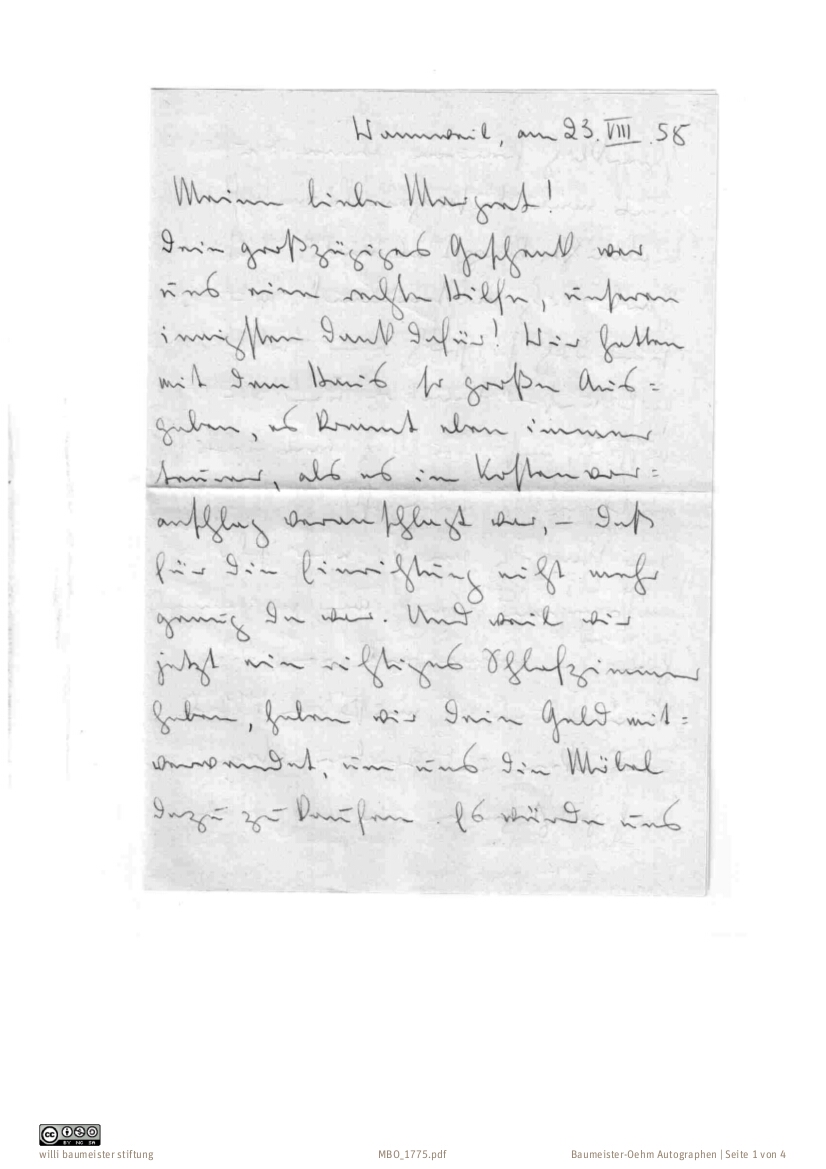 Wannweil, am 23. VIII. 58
Meine liebe Margret!
Dein großzügiges Geschenk war
uns eine rechte Hilfe, unseren
innigsten Dank dafür! Wir hatten
mit dem Haus so große Aus=
gaben, es kommt eben immer
teurer, als es im Kostenvor=
anschlag veranschlagt war, – daß
für die Einrichtung nicht mehr
genug da war. Und weil wir
jetzt ein richtiges Schlafzimmer
haben, haben wir Dein Geld mit=
verwendet, um uns die Möbel
dazu zu kaufen. Es würde uns
CC BY NC SA
willi baumeister stiftung MBO_1775.pdf Baumeister-Oehm Autographen | Seite 1 von 4